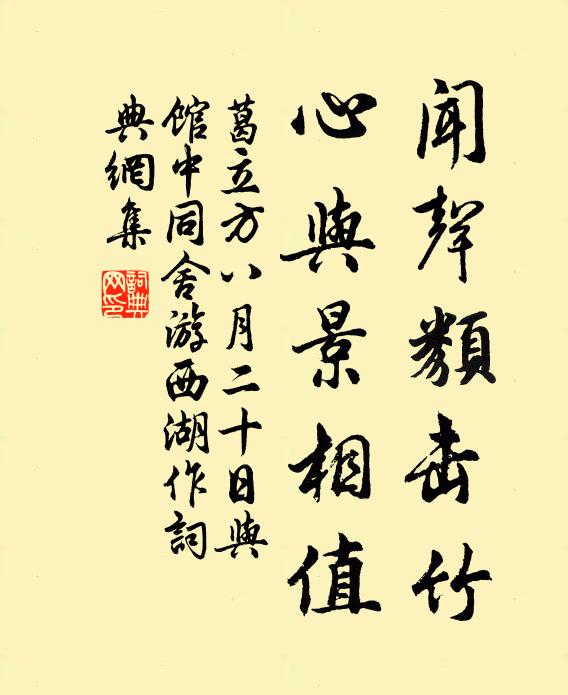 聞聲類击竹
心與景相值
葛立方八月二十日與
馆中同舍游西湖作詞
典網集
詞典
网印